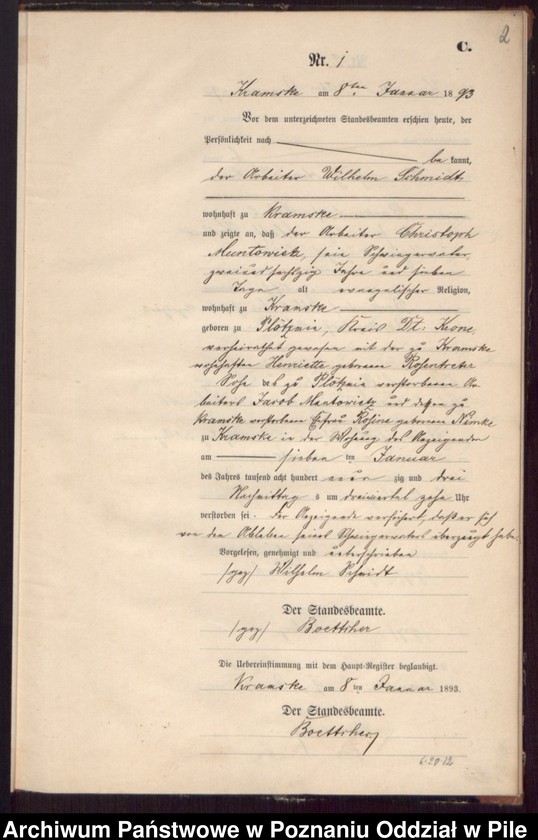 2
C.
Nr. 1
Kramske am 8ten Januar 1893
Vor dem unterzeichneten Standesbeamten erschien heute, der
Persönlichkeit nach
bekannt,
der Arbeiter Wilhelm Schmidt
wohnhaft zu Kramske
und zeigte an, daß der Arbeiter Christoph
Muntowicz, sein Schwiegervater,
zweiundsechszig Jahre und sieben
Tage alt evangelischer Religion,
wohnhaft zu Kramske
geboren zu Plötzmin, Kreis Dt: Krone,
verheirathet gewesen mit der zu Kramske
wohnhaften Henriette geborenen Rosentreter
Sohn des zu Plötzmin verstorbenen Ar-
beiters Jacob Mantowicz und dessen zu
Kramske verstorbenen Ehefrau Rosine geborenen Nimke
zu Kramske in der Wohnung des Anzeigenden
am sieben ten Januar
des Jahres tausend acht hundert neun zig und drei
Nachmittags um dreiviertel zehn Uhr
verstorben sei. Der Anzeigende versichert, daß er sich
von dem Ableben seines Schwiegervaters überzeugt habe.
Vorgelesen, genehmigt und unterschrieben
(gez) Wilhelm Schmidt
Der Standesbeamte.
(gez) Boettcher
Die Uebereinstimmung mit dem Haupt-Register beglaubigt.
Kramske am 8ten Januar 1893.
Der Standesbeamte.
Boettcher
6.20.12
Archiwum Państwowe w Poznaniu Oddział w Pile